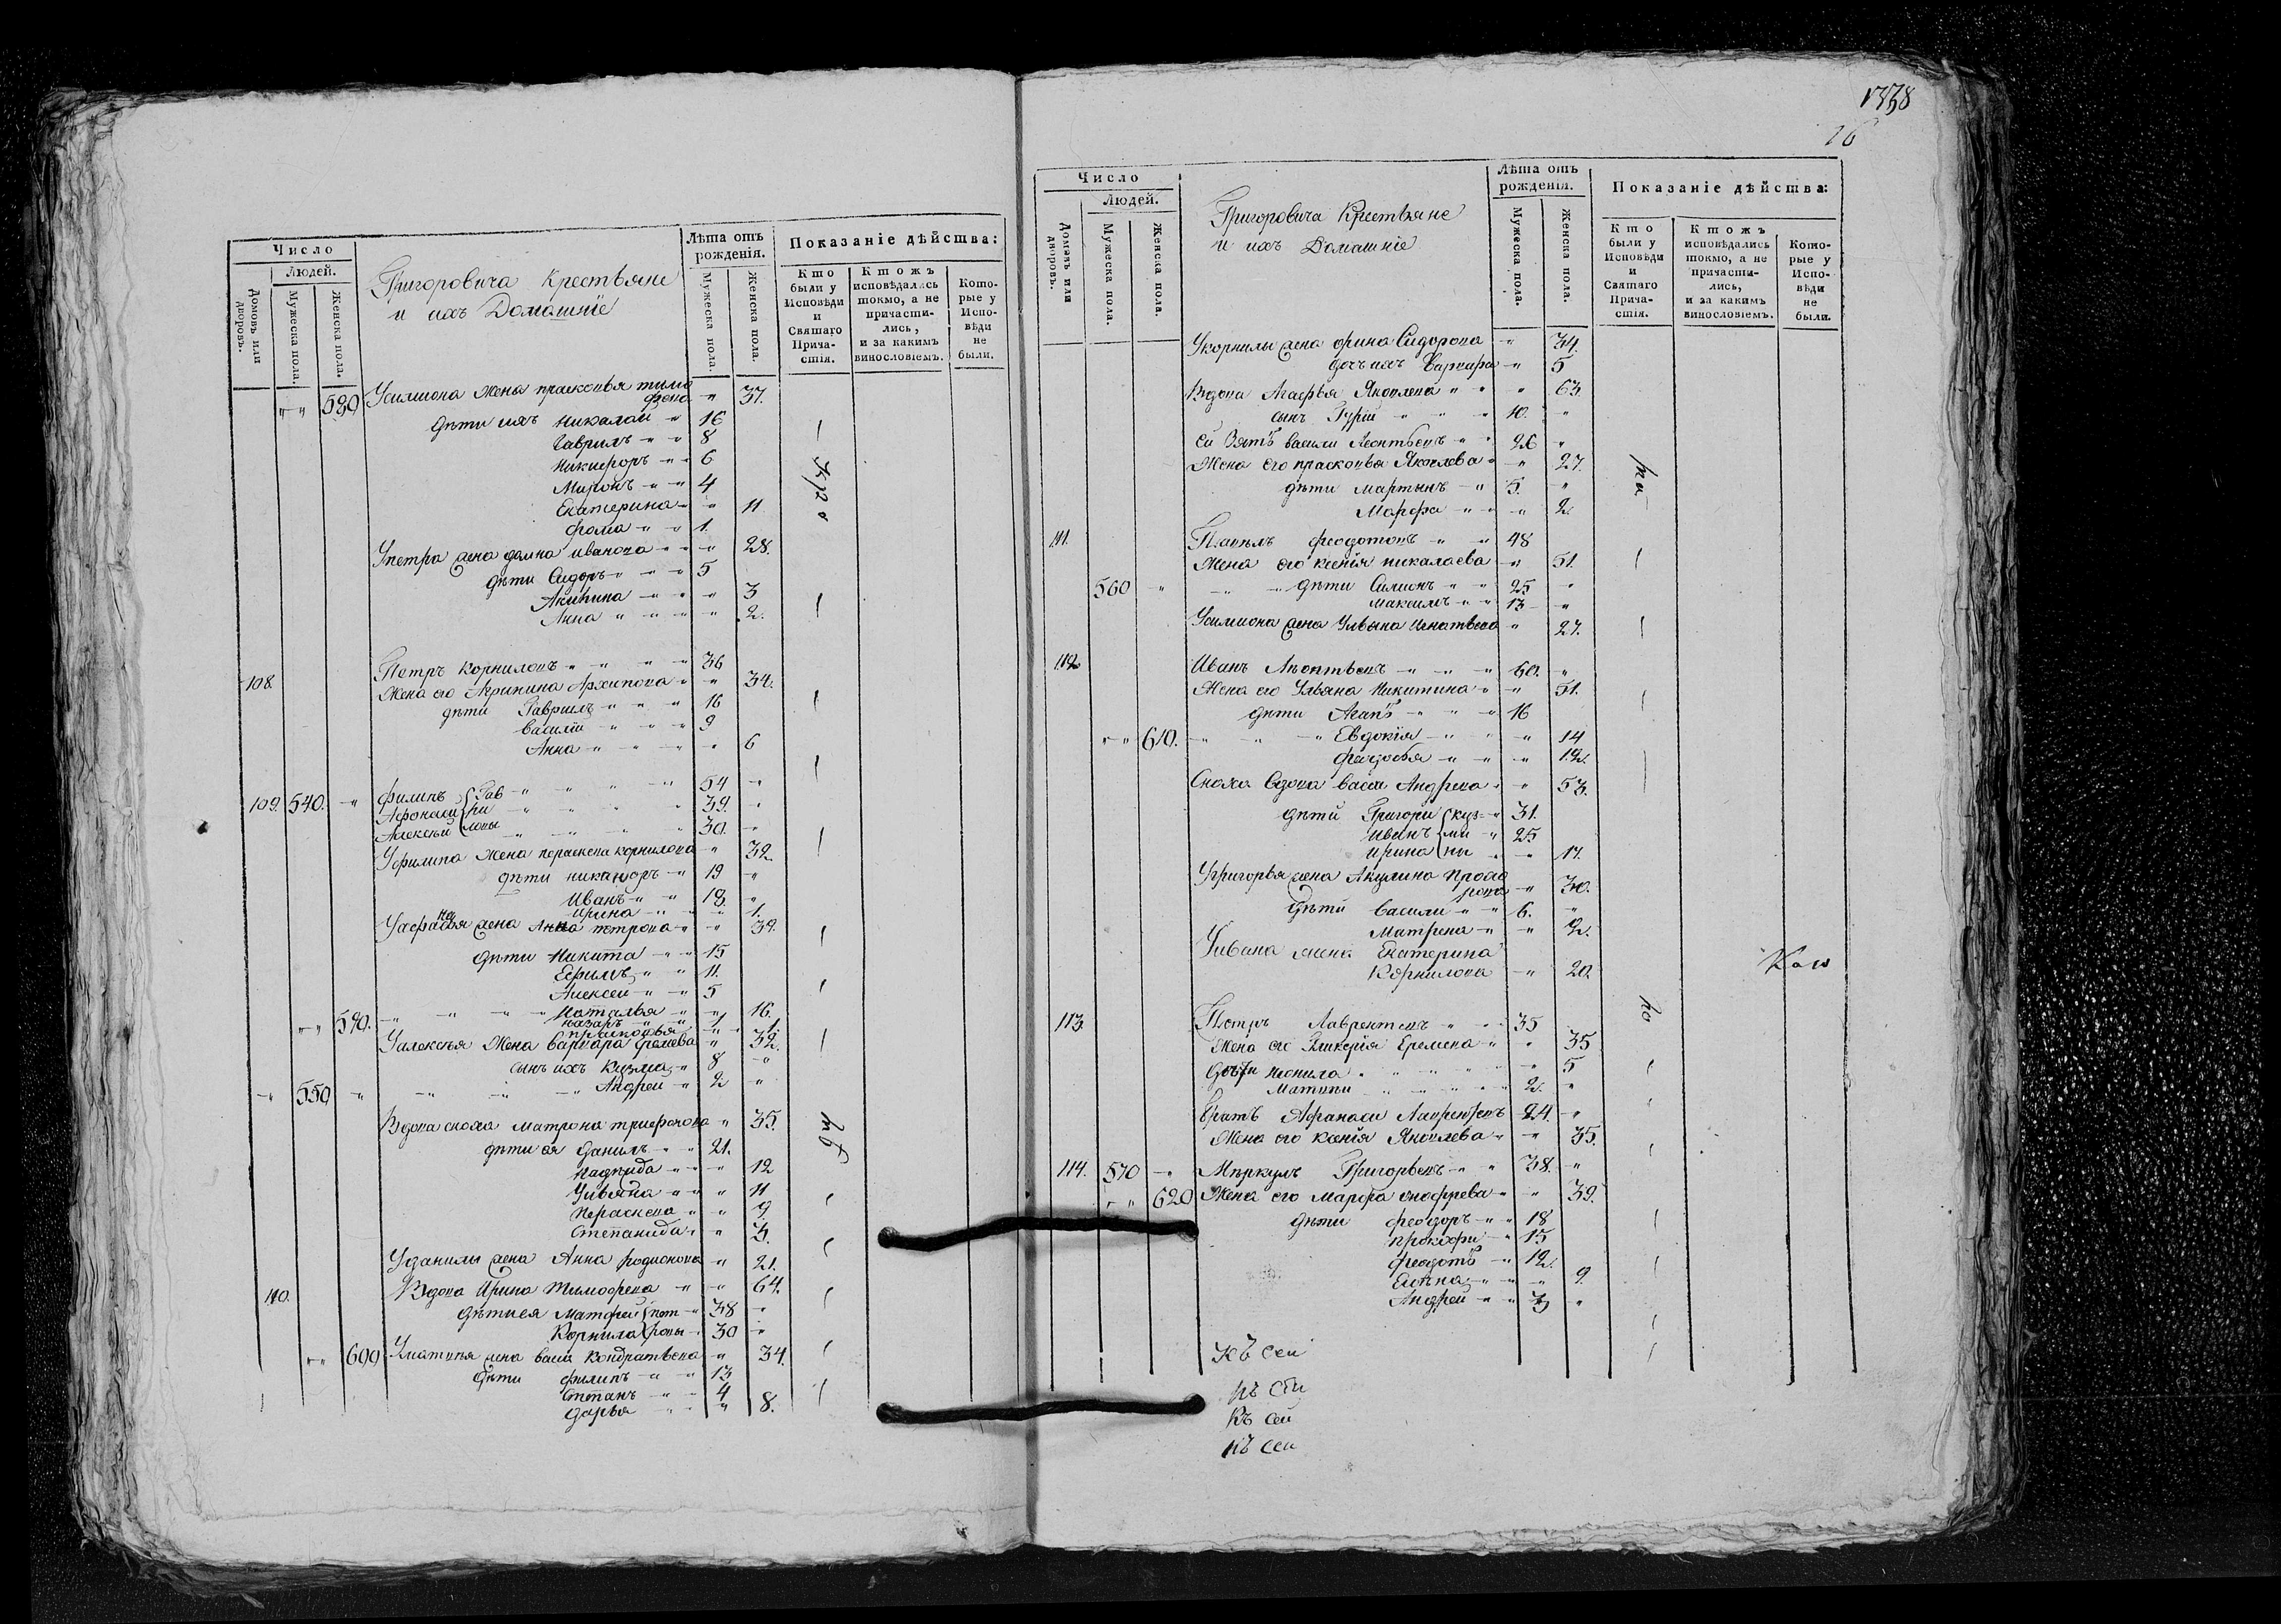 Число
Людей.
Домовъ или дворовъ.
Мужеска пола.
Женска пола.
Григоровича Крестьяне
и ихъ Домашніе
Лѣта отъ рожденія.
Мужеска пола.
Женска пола.
Показаніе дѣйства:
Кто были у Исповѣди и Святаго Причастія.
Ктожъ исповѣдались токмо, а не причастились, и за какимъ винословіемъ.
Которые у Исповѣди не были.
"" 580 Усимиона жена прасковья тимо
фѣева " 37.
дѣти ихъ Николай " 16
Гаврилъ " " 8
Никифоръ " " 6
Миронъ " " 4
Екатерина " " 11
Фома " " 1.
Упетра жена домна иванова " " " 28.
дѣти Сидоръ " " " 5
Акилина " " " 3
Анна " " " " 2.
108. Петръ Корниловъ " " " " 36
Жена его Акрипина Архипова " " 34.
дѣти Гавриилъ " " " 16
василій " " " 9
Анна " " " " 6
109. 540. " Филипъ Гав " " " " 54 "
Афонасй ри " " " " 39. "
Алексѣй ловы " " " " 30. "
Уфилипа жена пераскева корнилова " 32
дѣти никаноръ " 19 "
Иванъ " " 18. "
ирина " " " 1.
на
Уафрасья жена Анна петрова " " 39.
дѣти Никита " " 15
Ефимъ " " 11.
Алексей " " 5
"" 590. " " " " Наталья " " 16.
назаръ " " 1
прасковья " " 1.
Уалексѣя Жена варвара фомева " 32.
сынъ ихъ Кузма " 8 "
" 550 " " " " Андрей " 2 "
Вдова сноха матрона трифонова " 35.
дѣти ея Данилъ " " 21.
Надѣжда " " " 12
Ульяна " " " 11
Пераскева " " 9.
Степанида " " 3.
Уданилы жена Анна родионова " 21.
110. Вдова Ирина Тимофеева " " 64.
дѣти ея Матфей пет " 38 "
Корнила ровы " 30 "
"" 600 Уматвѣя жена васа Кондратьева " 34.
дѣти филипъ " " 13
Степанъ " " 4
дарья " " " 8.
1338
16
Число
Людей.
Домовъ или дворовъ.
Мужеска пола.
Женска пола.
Григоровича Крестьяне
и ихъ Домашніе
Лѣта отъ рожденія.
Мужеска пола.
Женска пола.
Показаніе дѣйства:
Кто были у Исповѣди и Святаго Причастія.
Ктожъ исповѣдались токмо, а не причастились, и за какимъ винословіемъ.
Которые у Исповѣди не были.
Укорнилы жена орина Сидорова " 34.
дочь ихъ варвара " 5
Вдова Агафья Яковлева " " " 63.
сынъ Гурій " " " 10. "
Ей Зятъ василй Леонтьевъ " " 26 "
Жена его прасковья Яковлева " " 27.
дѣти Мартынъ " " 5. "
Марфа " " " 2
111. Павелъ Феодотовъ " " 48
Жена его ксенія николаева " 51.
560 " " " дѣти Симионъ " " 25 "
Максимъ " " 13 "
Усимиона жена Ульяна Игнатьева " 27.
112. Иванъ Леонтьевъ " " " 60. "
Жена его Ульяна Никитина " " 51.
дѣти Агапъ " " " 16
"" 610. " " " Евдокія " " " 14
Феодосья " " " 12.
Сноха вдова васса Андреева " " 53.
дѣти Григорй куз " 31.
Иванъ ми " 25
ирина ны " " 17.
Угригорья жена Акулина Прохо
рова " 30.
дѣти василй " " 6. "
Матрена " " 2.
Уивана жена Екатерина
Корнилова " 20.
113. Петръ Лаврентевъ " " " 35
Жена его Гликерія Еремеева " " 35
дѣти Неонила " " " " " 5
Матвѣй " " " " 2. "
братъ Афанасй Лаврентевъ 24. "
Жена его ксенія Яковлева " " 35.
114. 570 " Меркулъ Григорьевъ " " 38. "
"" 620 Жена его Марфа онофрева " " 39.
дѣти Феодоръ " " 18
Прокофи " 15
Феодотъ " 12.
Елена " " " 9.
Андрей " " 3 "
Къ сей
къ сей
Къ сей
къ сей